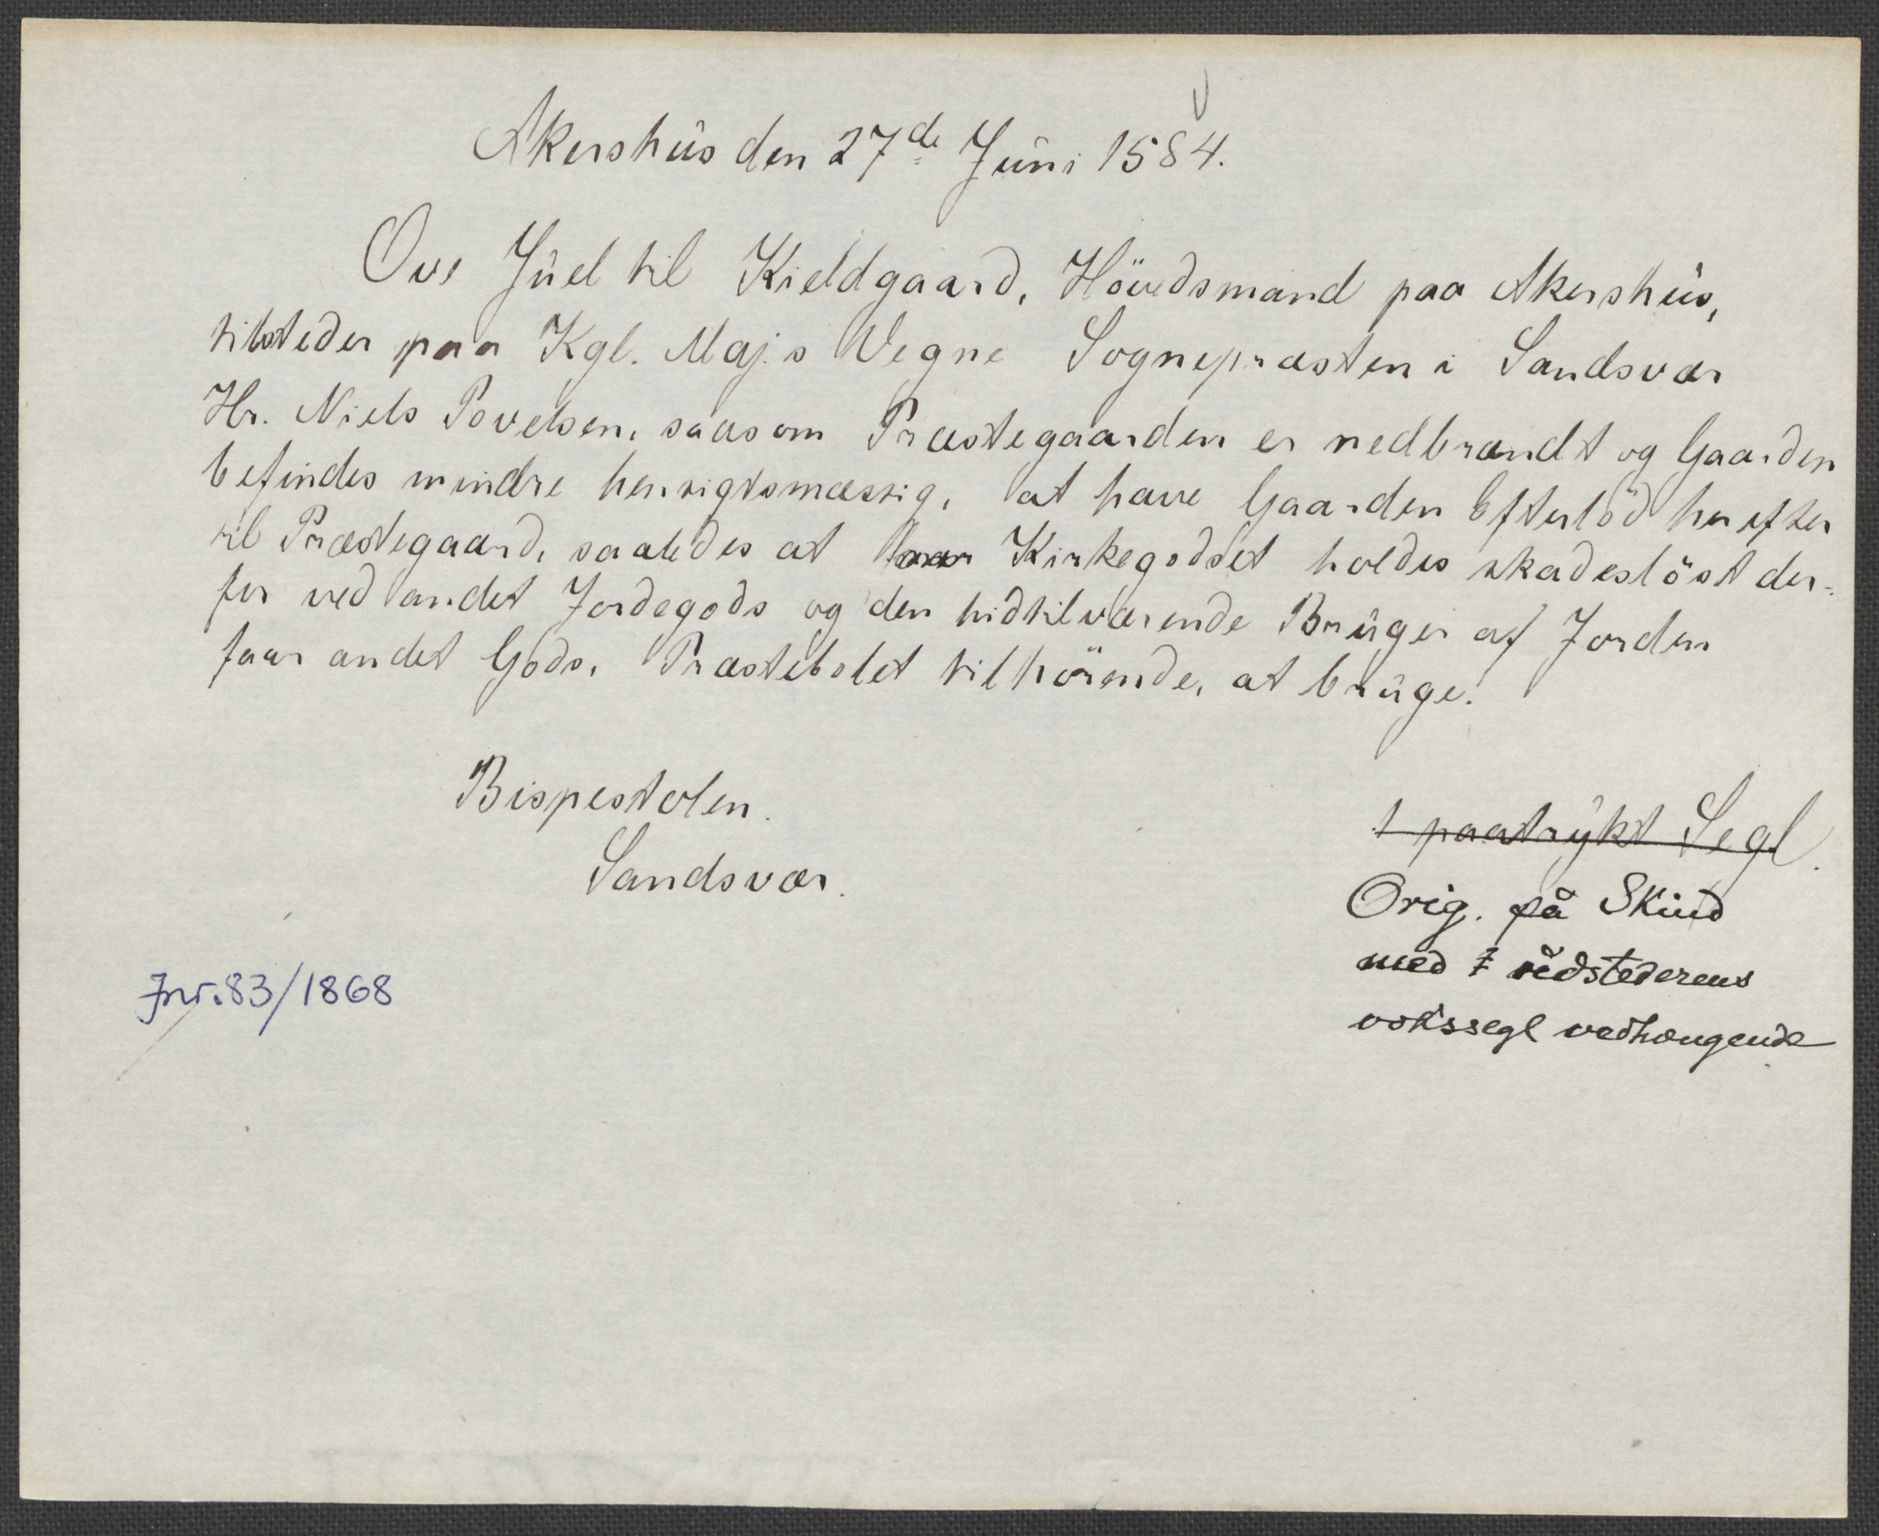 Akershus den 27de Juni 1584.
Ove Juel til Kieldgaard, Hövedsmand paa Akershus,
tilsteder paa Kgl. Maj.s Vegne Sognepræsten i Sandsvær
Hr. Niels Povelsen, saasom Præstegaarden er nedbrændt og Gaarden
befindes mindre hensigtsmæssig, at have Gaarden Efterlöd herefter
til Præstegaard, saaledes at Kirkegodset holdes skadeslöst der-
for ved andet Jordegods og den hidtilværende Bruger af Jorden
faar andet Gods, Præstebolet tilhörende, at bruge.
Bispestolen.
Sandsvær.
1 paatrykt Segl.
Orig. på Skind
med udstederens
vokssegl vedhængende
Jnr. 83/1868